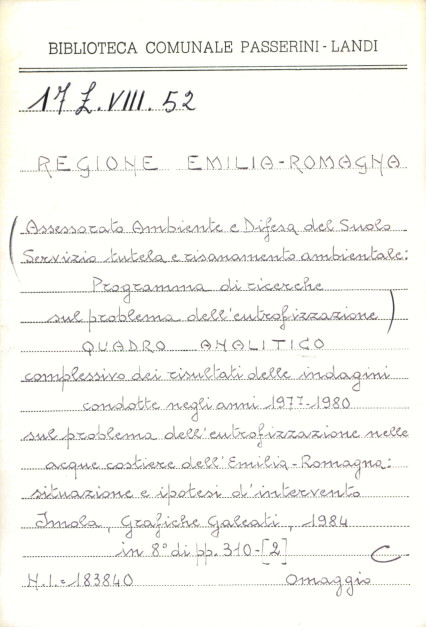 BIBLIOTECA COMUNALE PASSERINI-LANDI
17 Z. VIII. 52
REGIONE EMILIA-ROMAGNA
(Assessorato Ambiente e Difesa del Suolo
Servizio tutela e risanamento ambientale:
Programma di ricerche
sul problema dell'eutrofizzazione)
QUADRO ANALITICO
complessivo dei risultati delle indagini
condotte negli anni 1977-1980
sul problema dell'eutrofizzazione nelle
acque costiere dell'Emilia-Romagna:
situazione e ipotesi d'intervento
Imola, Grafiche Galeati, 1984
in 8° di pp. 310-[2]
C
N.I.=183840 Omaggio